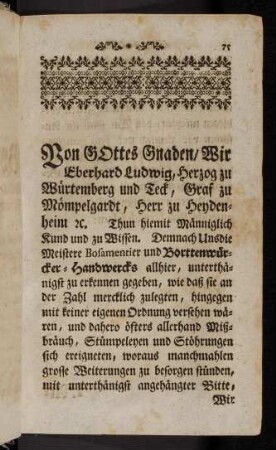 75
Von GOttes Gnaden/ Wir
Eberhard Ludwig, Herzog zu
Würtemberg und Teck, Graf zu
Mömpelgardt, Herr zu Heyden-
heim ꝛc. Thun hiemit Männiglich
Kund und zu Wissen. Demnach Uns die
Meistere Bosamentier und Borttenwür-
cker-Handwercks allhier, unterthä-
nigst zu erkennen gegeben, wie daß sie an
der Zahl mercklich zulegten, hingegen
mit keiner eigenen Ordnung versehen wä-
ren, und dahero öfters allerhand Miß-
bräuch, Stümpeleyen und Stöhrungen
sich ereigneten, woraus manchmahlen
grosse Weiterungen zu besorgen stünden,
mit unterthänigst angehängter Bitte,
Wir